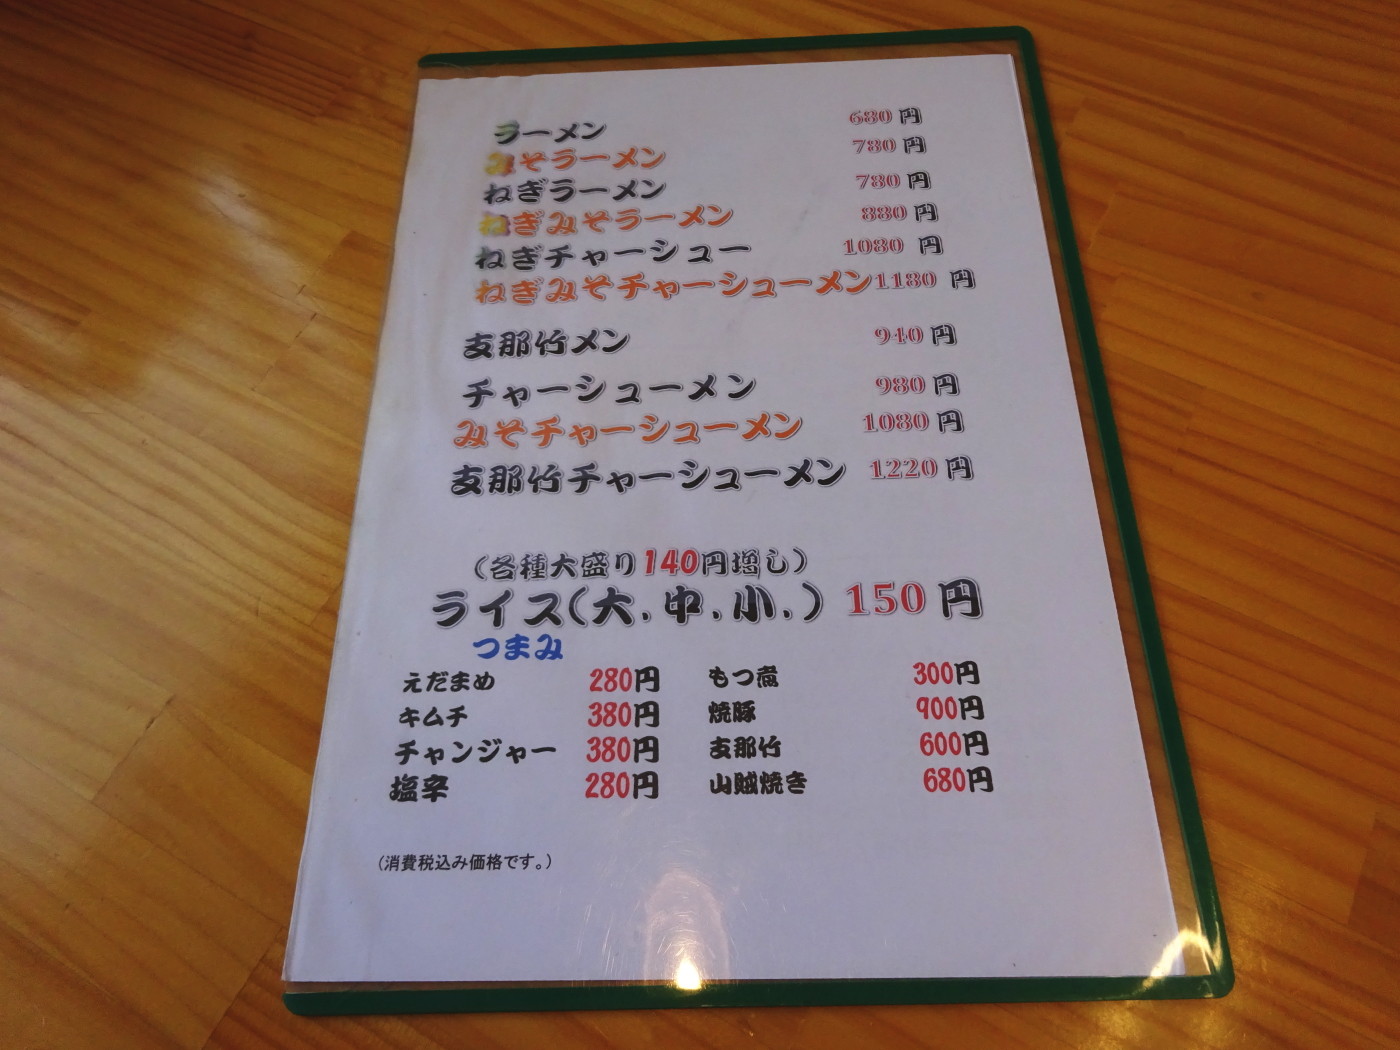 ラーメン 680円
みそラーメン 780円
ねぎラーメン 780円
ねぎみそラーメン 880円
ねぎチャーシュー 1080円
ねぎみそチャーシューメン 1180円
支那竹メン 940円
チャーシューメン 980円
みそチャーシューメン 1080円
支那竹チャーシューメン 1220円
(各種大盛り140円増し)
ライス(大.中.小.) 150円
つまみ
えだまめ 280円 もつ煮 300円
キムチ 380円 焼豚 900円
チャンジャー 380円 支那竹 600円
塩辛 280円 山賊焼き 680円
(消費税込み価格です。)